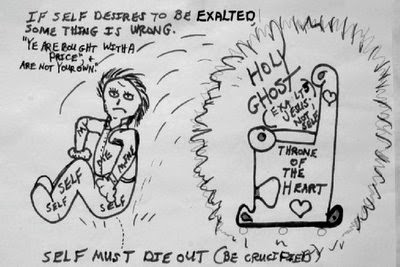 IF SELF DESIRES TO BE EXALTED,
SOMETHING IS WRONG.
"YE ARE BOUGHT WITH A
PRICE", &
ARE NOT YOUR OWN."
ME
MINE
SELF
SELF
SELF
HOLY
GHOST
(EXALTS
JESUS,
NOT
SELF)
THRONE
OF
THE
HEART
SELF MUST DIE OUT (BE CRUCIFIED)